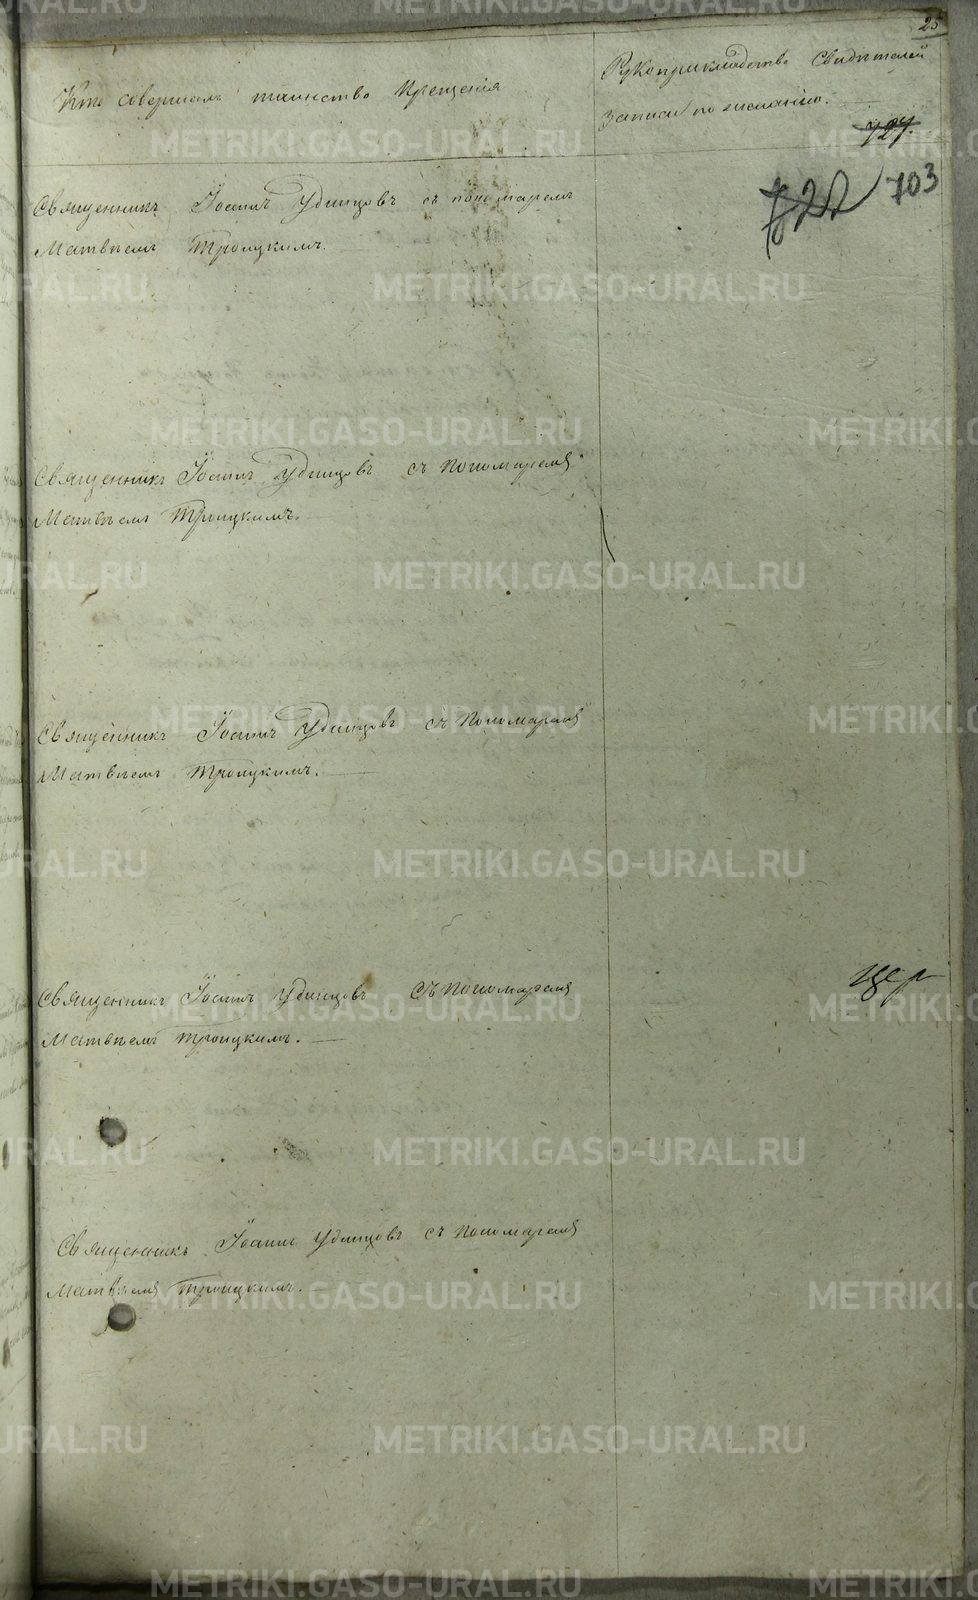 25
Кто совершалъ таинство Крещенія
Рукоприкладство Свидѣтелей
Записи по желанію.
727.
722 703
Священникъ Іоаннъ Удинцовъ съ пономаремъ
Матвѣемъ Троицкимъ.
Священникъ Іоаннъ Удинцовъ съ пономаремъ
Матвѣемъ Троицкимъ.
Священникъ Іоаннъ Удинцовъ съ Пономаремъ
Матвѣемъ Троицкимъ.
Священникъ Іоаннъ Удинцовъ съ пономаремъ
Матвѣемъ Троицкимъ.
Священникъ Іоаннъ Удинцовъ съ пономаремъ
Матвѣемъ Троицкимъ.
METRIKI.GASO-URAL.RU